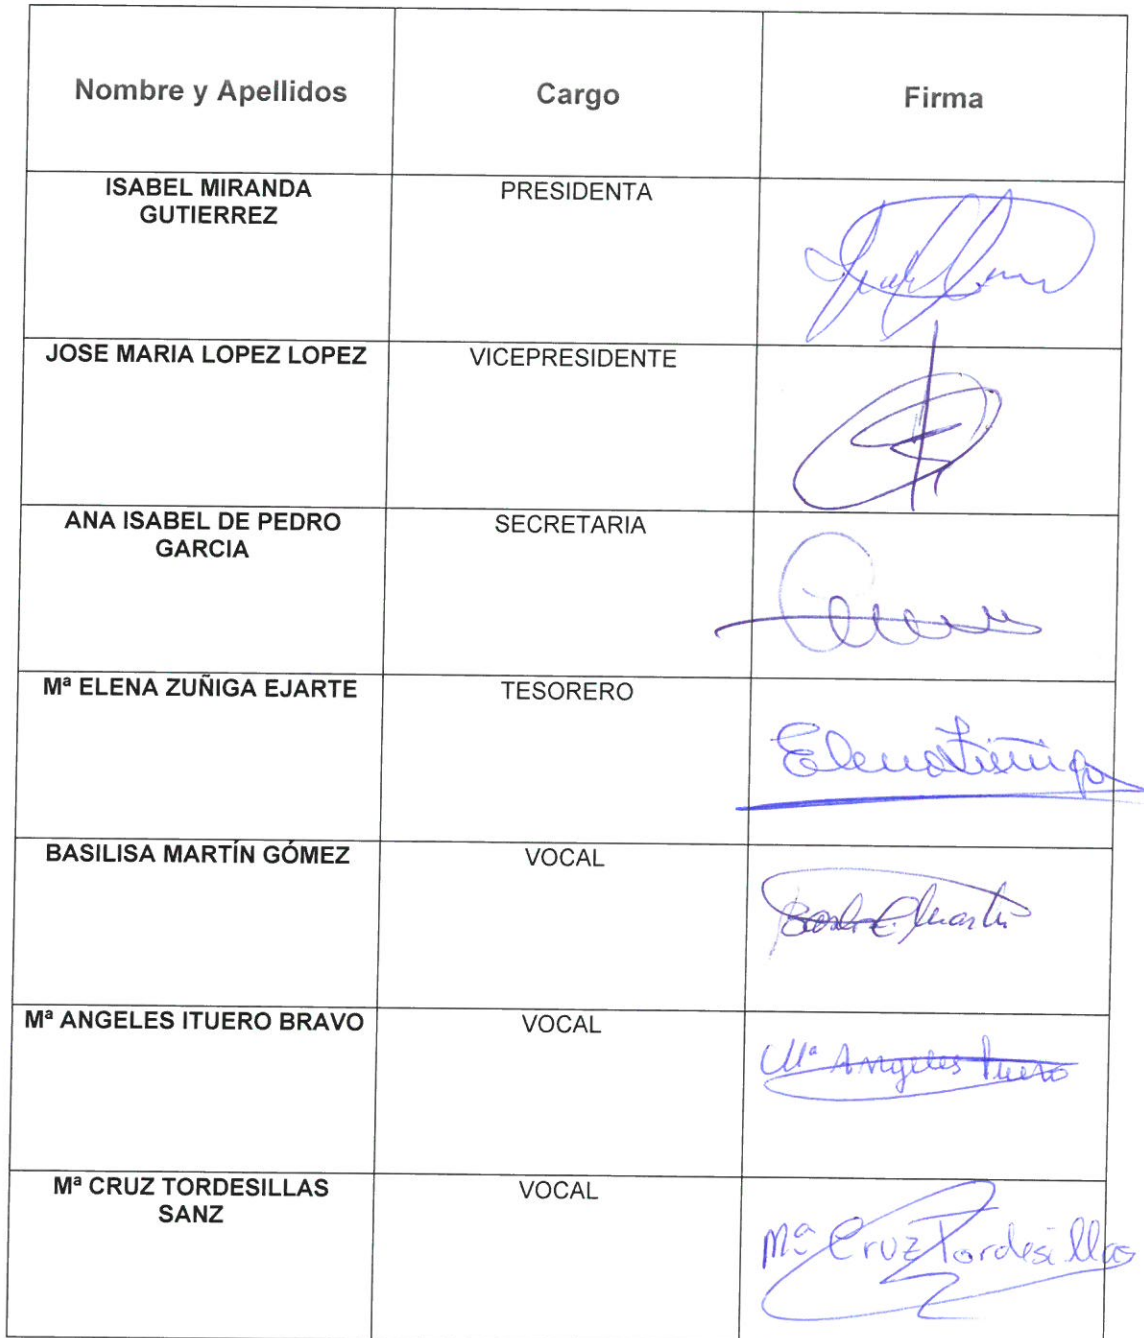 Nombre y Apellidos Cargo Firma
ISABEL MIRANDA PRESIDENTA
GUTIERREZ
JOSE MARIA LOPEZ LOPEZ VICEPRESIDENTE
ANA ISABEL DE PEDRO SECRETARIA
GARCIA
Mª ELENA ZUÑIGA EJARTE TESORERO
Elena Zúñiga
BASILISA MARTÍN GÓMEZ VOCAL
Mª ANGELES ITUERO BRAVO VOCAL
Mª Angeles Ituero
Mª CRUZ TORDESILLAS VOCAL
SANZ
Mª Cruz Tordesillas